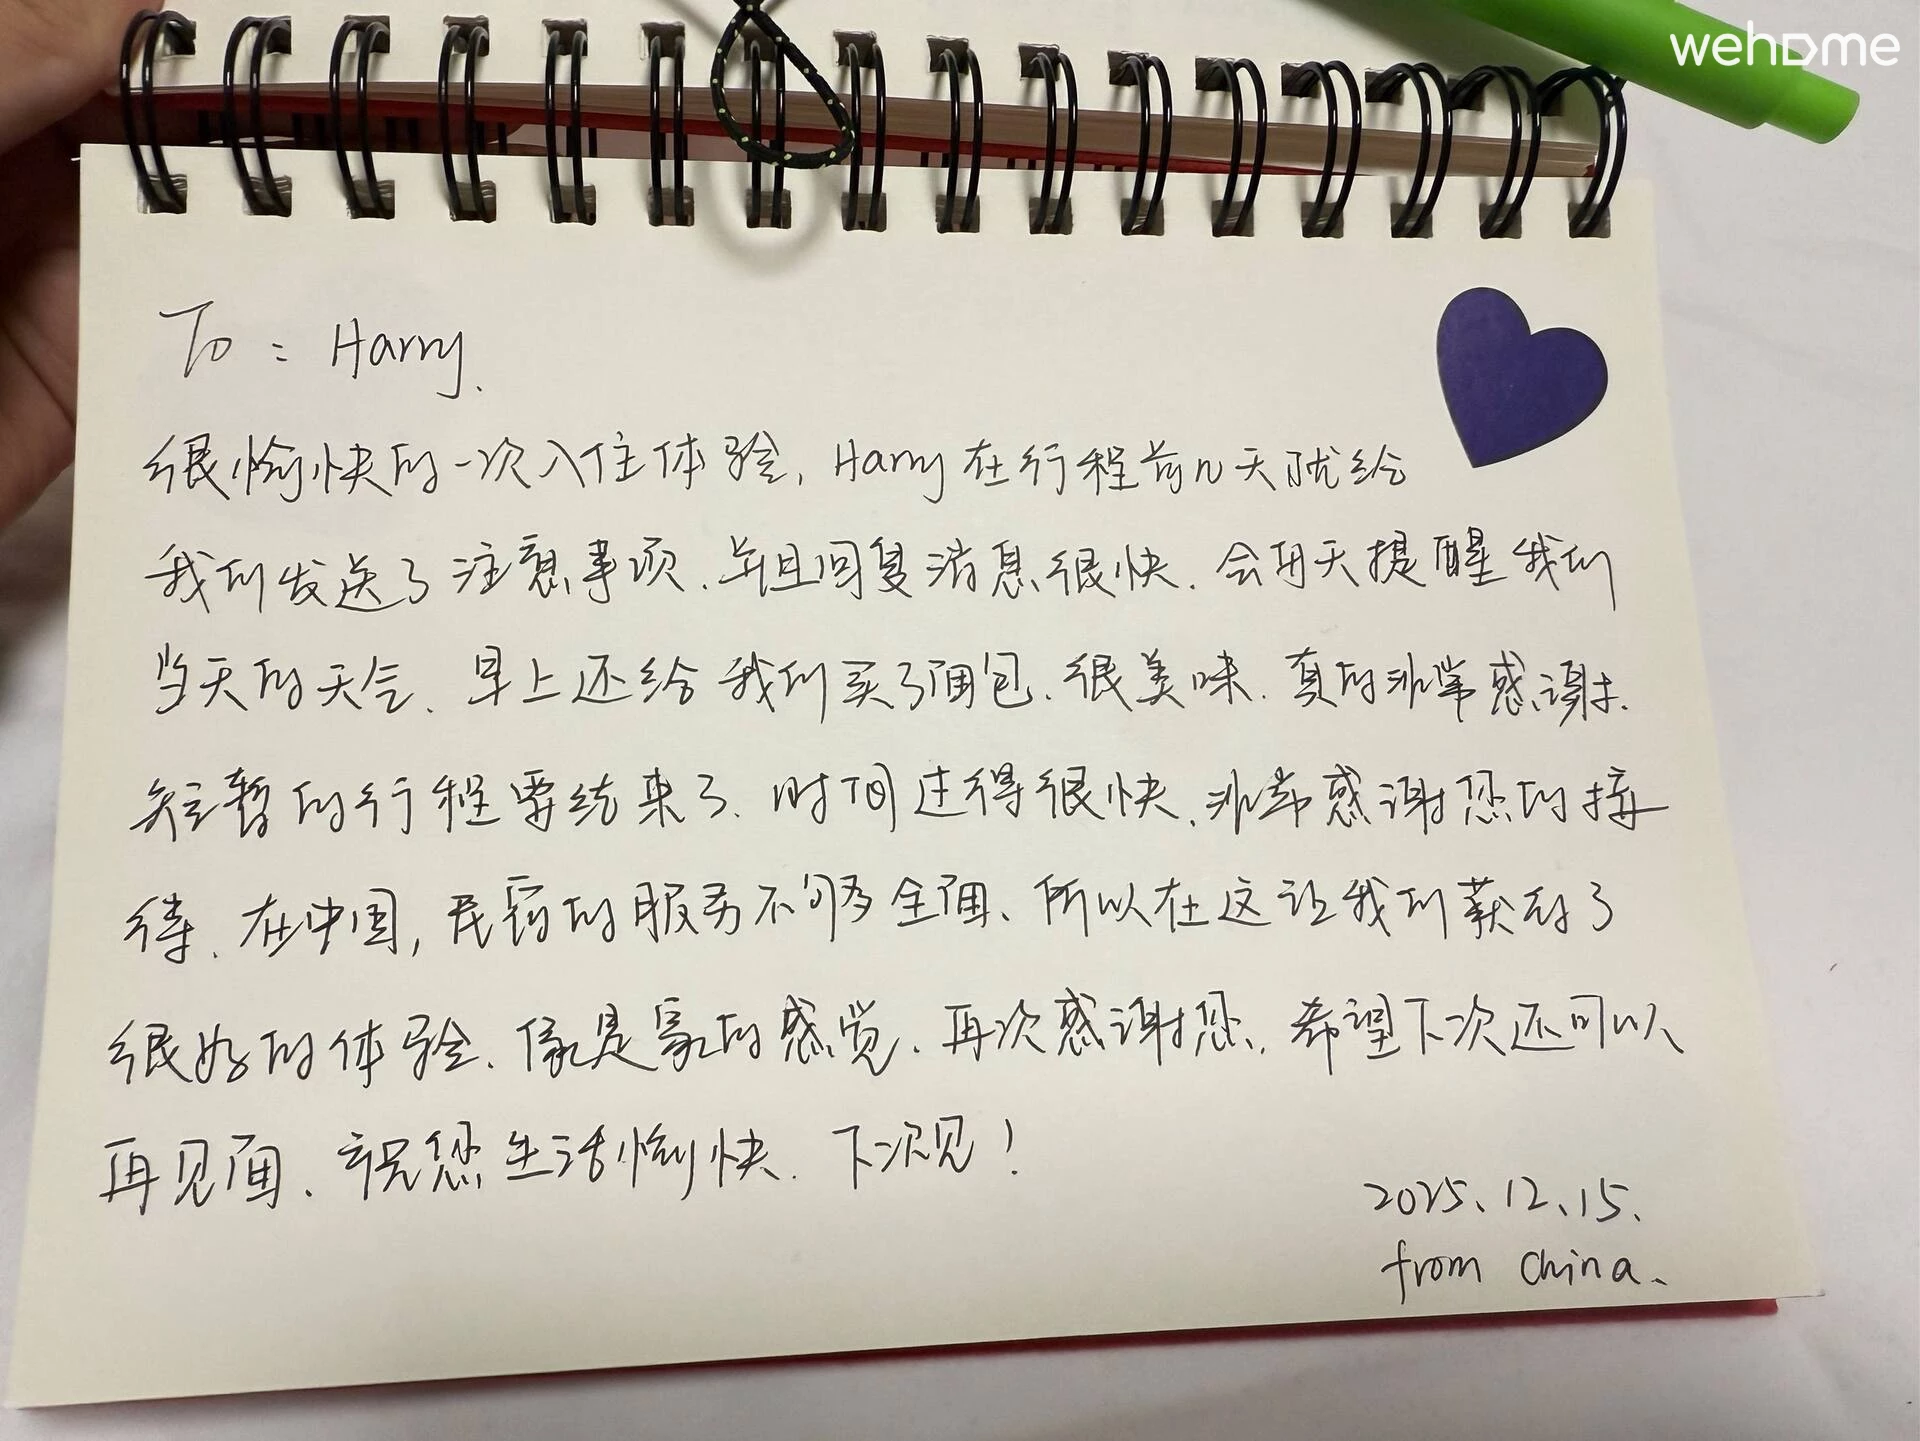 wehome
To: Harry.
很愉快的一次入住体验, Harry在行程前几天就给
我们发送了注意事项.并且回复消息很快.会每天提醒我们
当天的天气.早上还给我们买了面包.很美味.真的非常感谢.
短暂的行程要结束了.时间过得很快.非常感谢您的接
待.在中国,民宿的服务不够全面、所以在这让我们获的了
很好的体验.像是家的感觉.再次感谢您.希望下次还可以
再见面、祝您生活愉快.下次见!
2025.12.15.
from China.